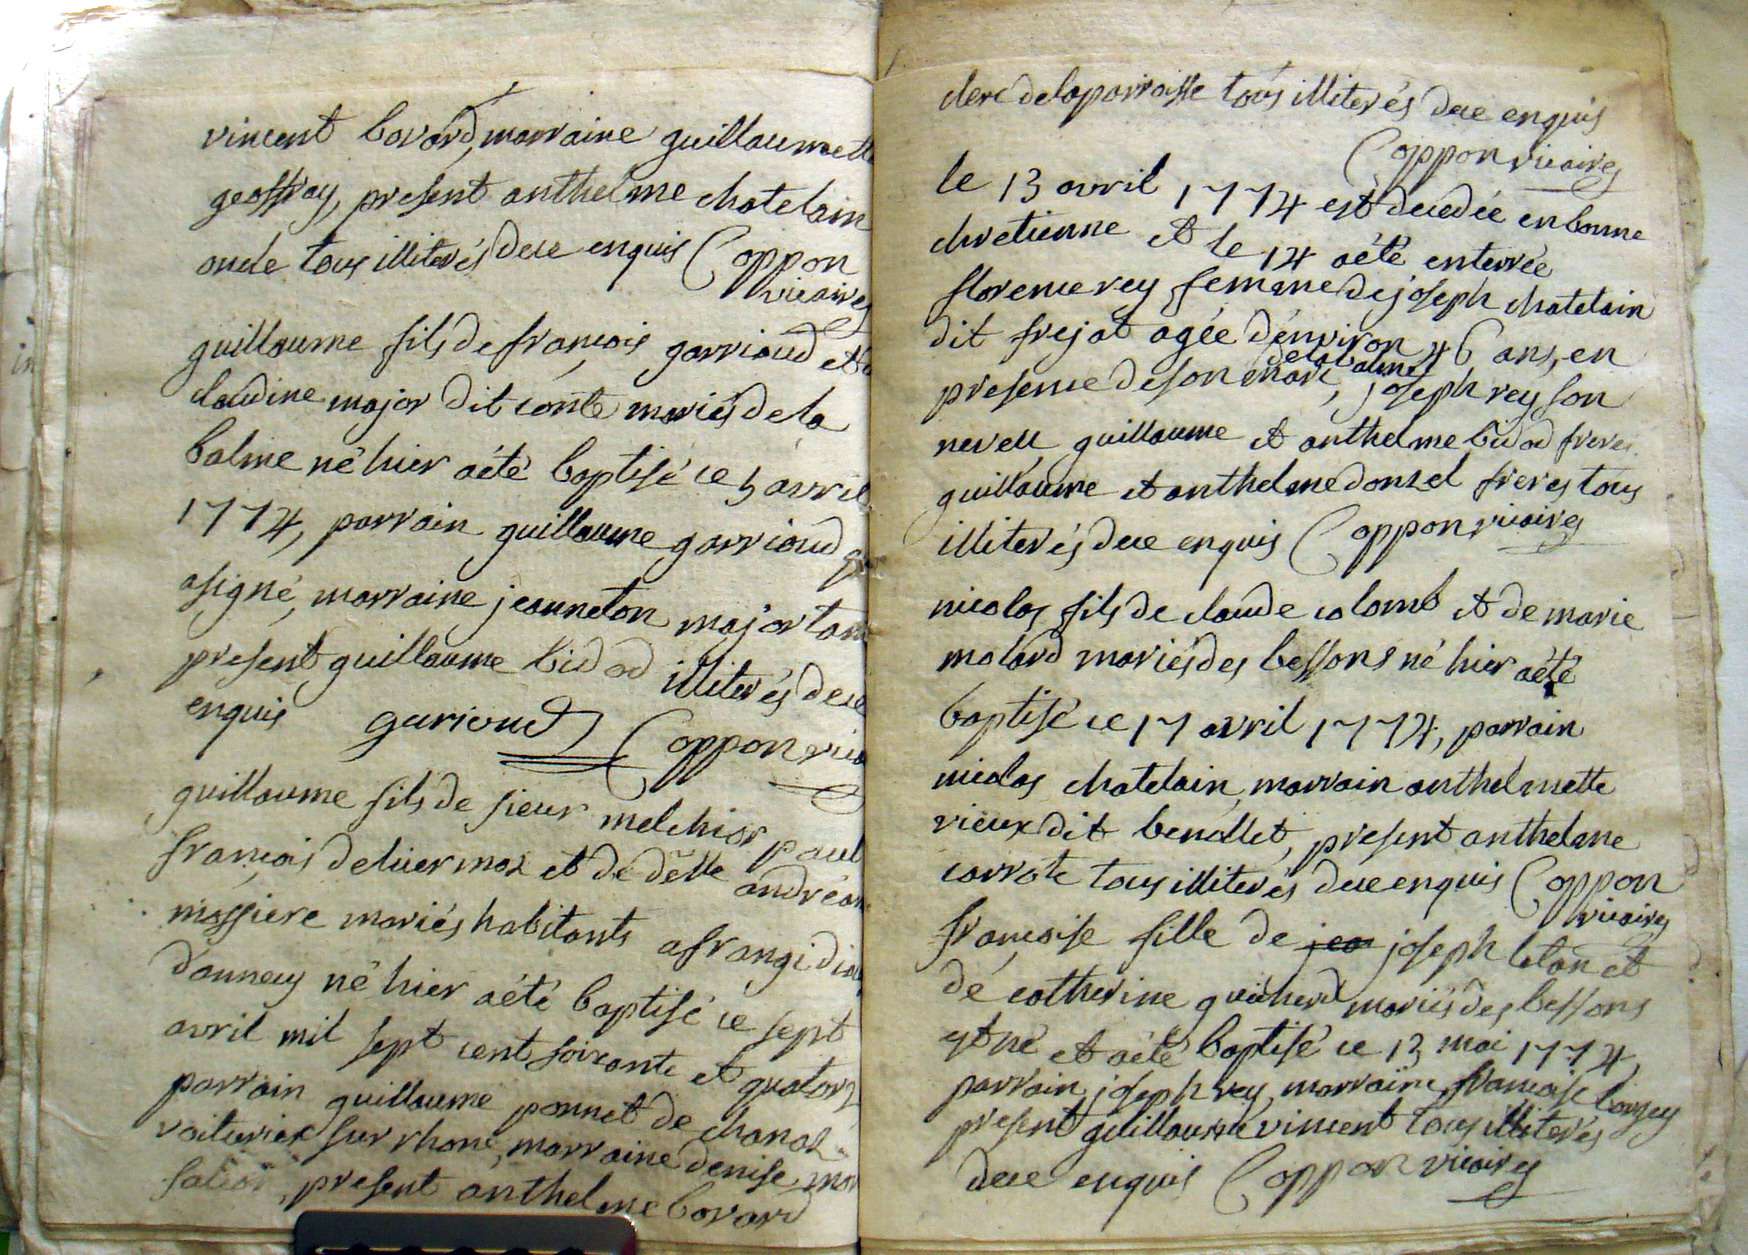 vincent bovard, marraine guillaumette
geoffray, present anthelme chatelain
oncle tous illiterés de ce enquis Coppon
vicaires
guillaume fils de françois garrioud et
claudine major dit conte mariés de la
balme né hier aété baptisé ce 5 avril
1774, parrain guillaume garrioud
asigné, marraine jeanneton major
present guillaume bidod illiterés de ce
enquis garioud Coppon
guillaume fils de sieur melchior paul
françois et de delle
massiere mariés habitants afrangi
dannecy né hier aété baptisé ce sept
avril mil sept cent soixante et
parrain guillaume ponnet de chanaz
voiturier sur rhone, marraine denise
present anthelme bovard
clerc de laparroisse tous illiterés de ce enquis
Coppon vicaires
le 13 avril 1774 est decedée en bonne
chretienne et le 14 aété enterrée
florence rey femme de joseph chatelain
dit frejat agée d'environ 46 ans, en
de la balme
presence de son mari, joseph rey son
neveu guillaume et anthelme bidod freres
guillaume et anthelme donzel freres tous
illiterés de ce enquis Coppon vicaires
nicolas fils de claude colomb et de marie
molard mariés des bessons né hier aété
baptisé ce 17 avril 1774, parrain
nicolas chatelain, marrain anthelmette
vieux dit benollet, present anthelme
carrote tous illiterés de ce enquis Coppon
vicaires
françoise fille de jea joseph et
de catherine guicherd mariés des bessons
est né et aété baptisé ce 13 mai 1774,
parrain joseph rey, marraine françoise
present guillaume vincent tous illiterés
de ce enquis Coppon vicaires